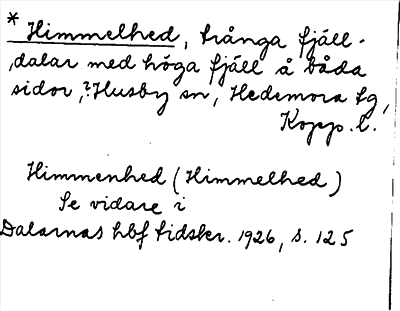 * Himmelhed, trånga fjäll-
dalar med höga fjäll å båda
sidor, ? Husby sn, Hedemora tg,
Kopp. l.
Himmenhed (Himmelhed)
Se vidare i
Dalarnas hbf tidskr. 1926, s. 125